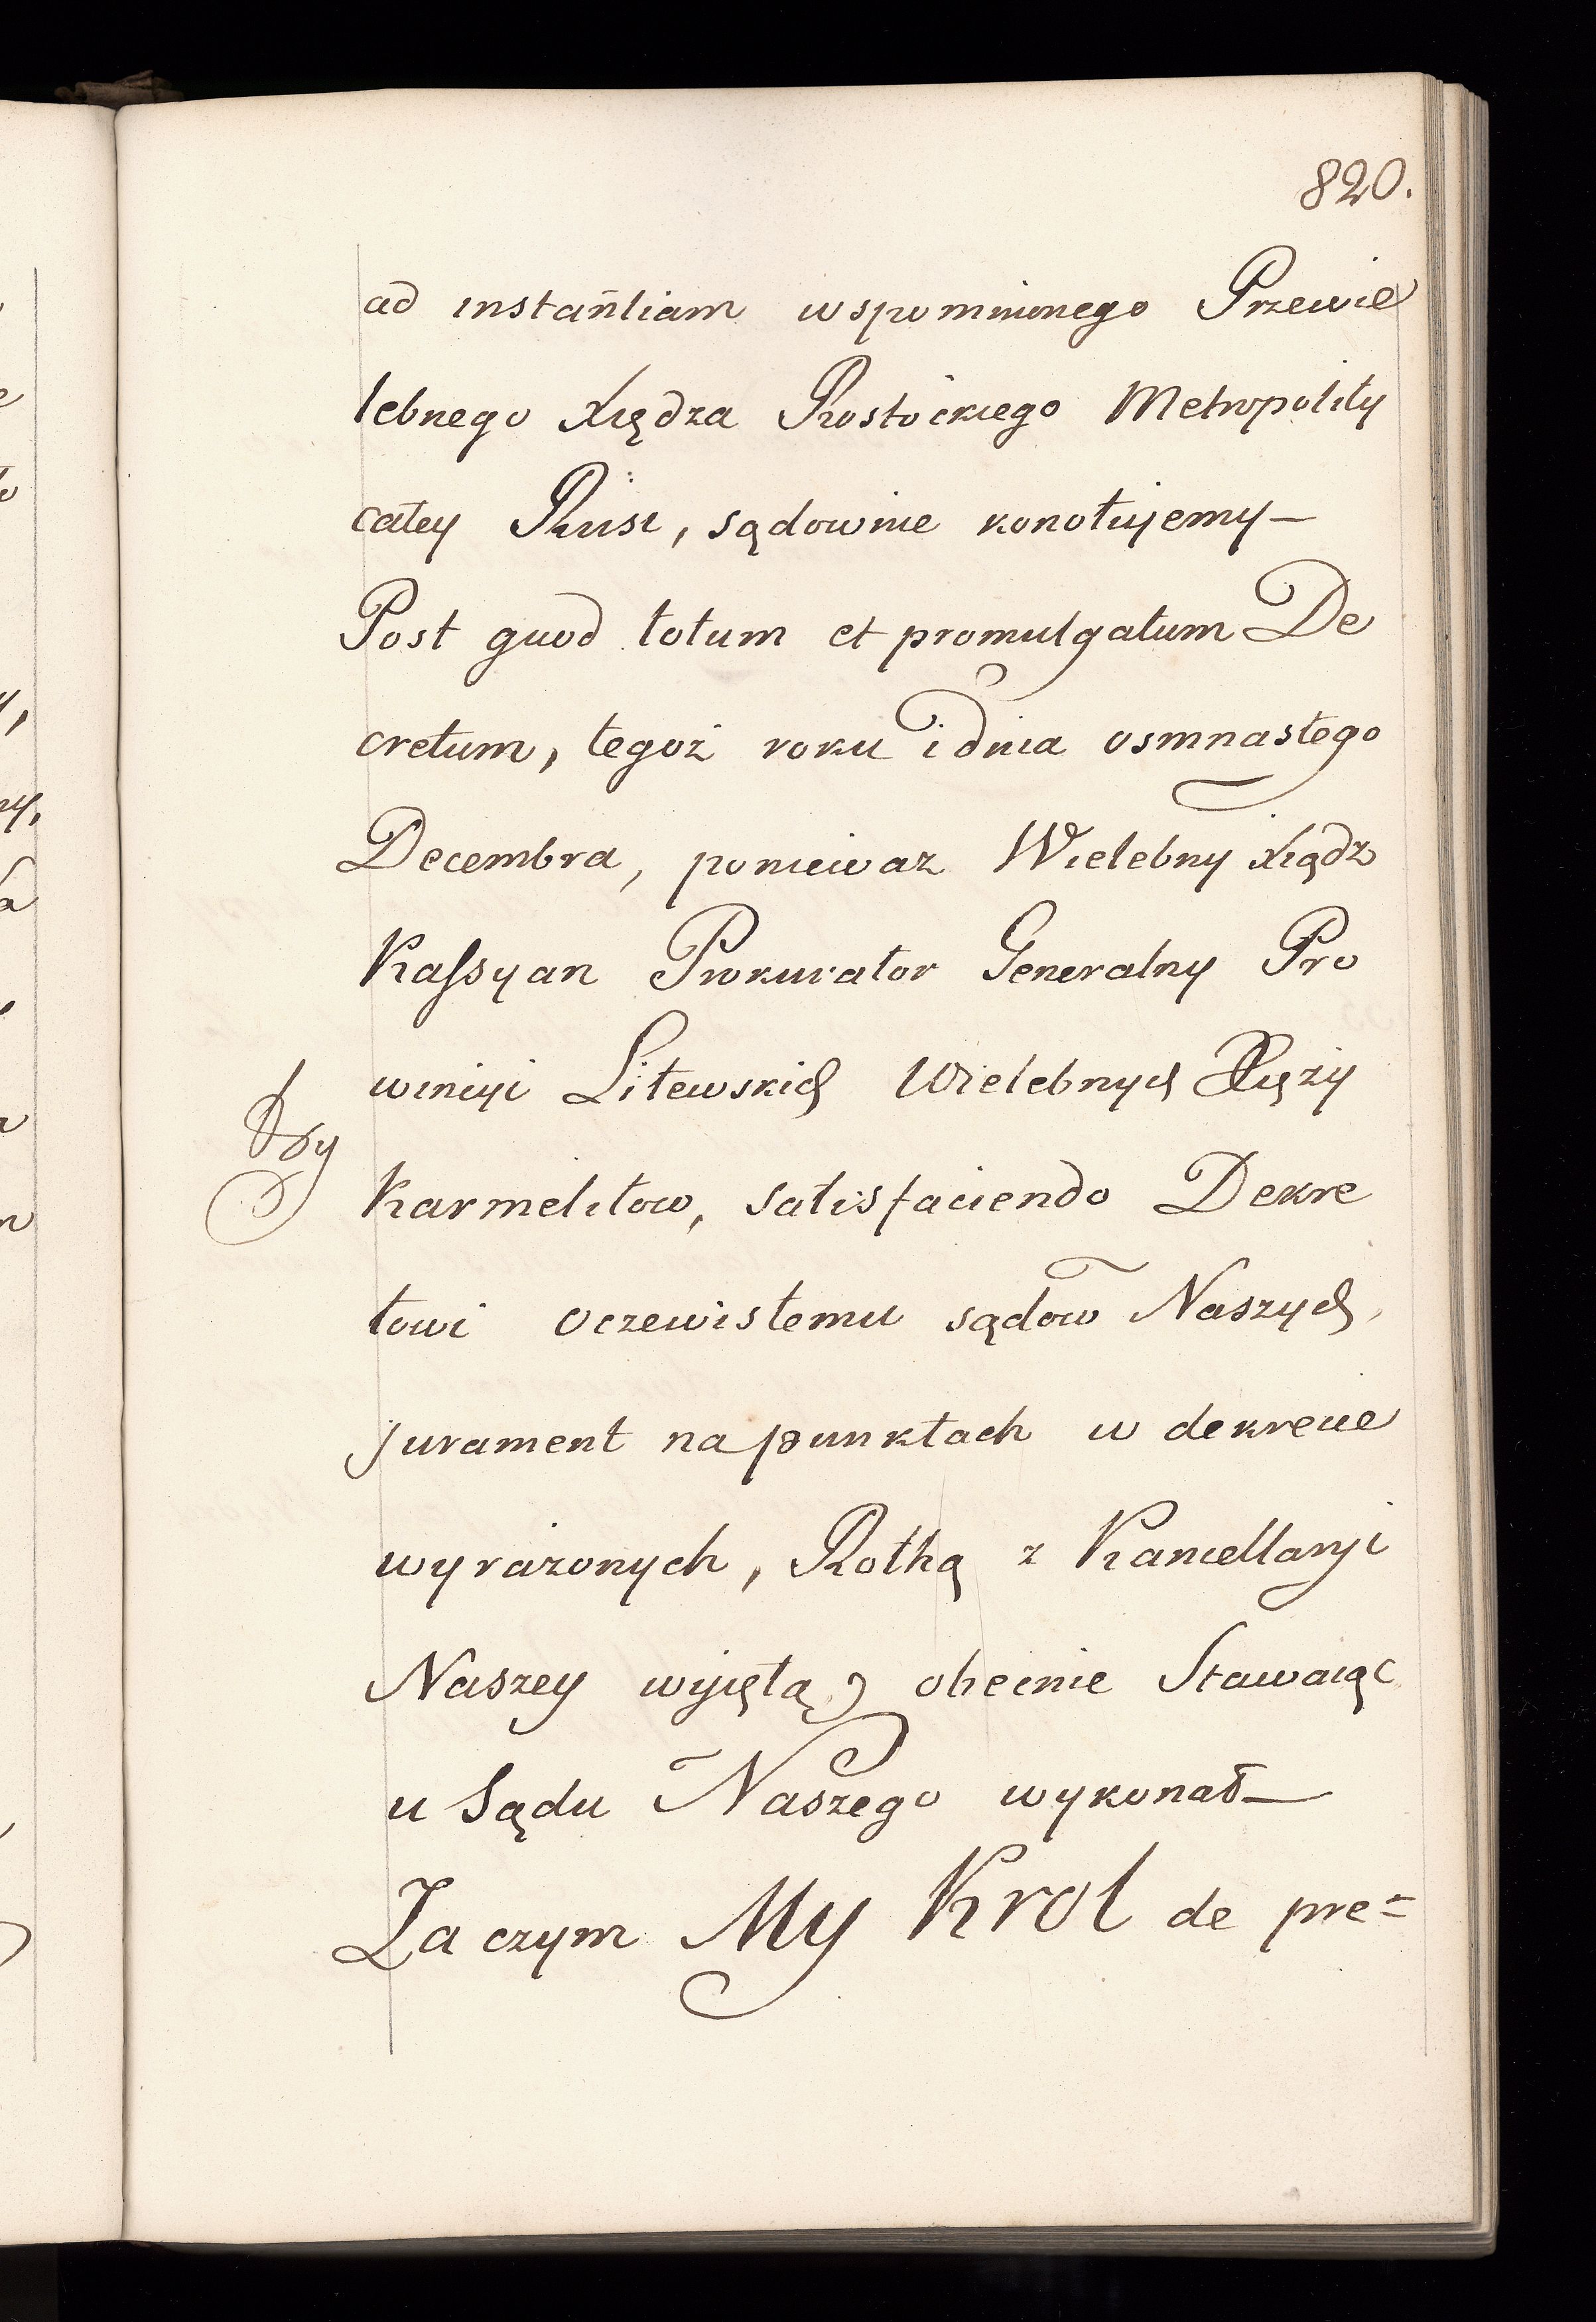 820.
ad instañtiam wspomnionego Przewie
lebnego Xiędza Rostockiego Metropolity
całey Rusi, sądownie konotujemy—
Post quod totum et promulgatum De
cretum, tegoż roku i dnia osmnastego
Decembra, poniewaz Wielebny Xiądz
Kassyan Prokurator Generalny Pro
wincyi Litewskich Wielebnych Xięży
Karmelitow, satisfaciendo Dekre
towi oczewistemu sądow Naszych,
jurament na punktach w dekrecie
wyrażonych, Rothą z Kancellaryi
Naszey wyjętą, obecnie Stawaiąc
u Sądu Naszego wykonał—
Za czym My Krol de pre=